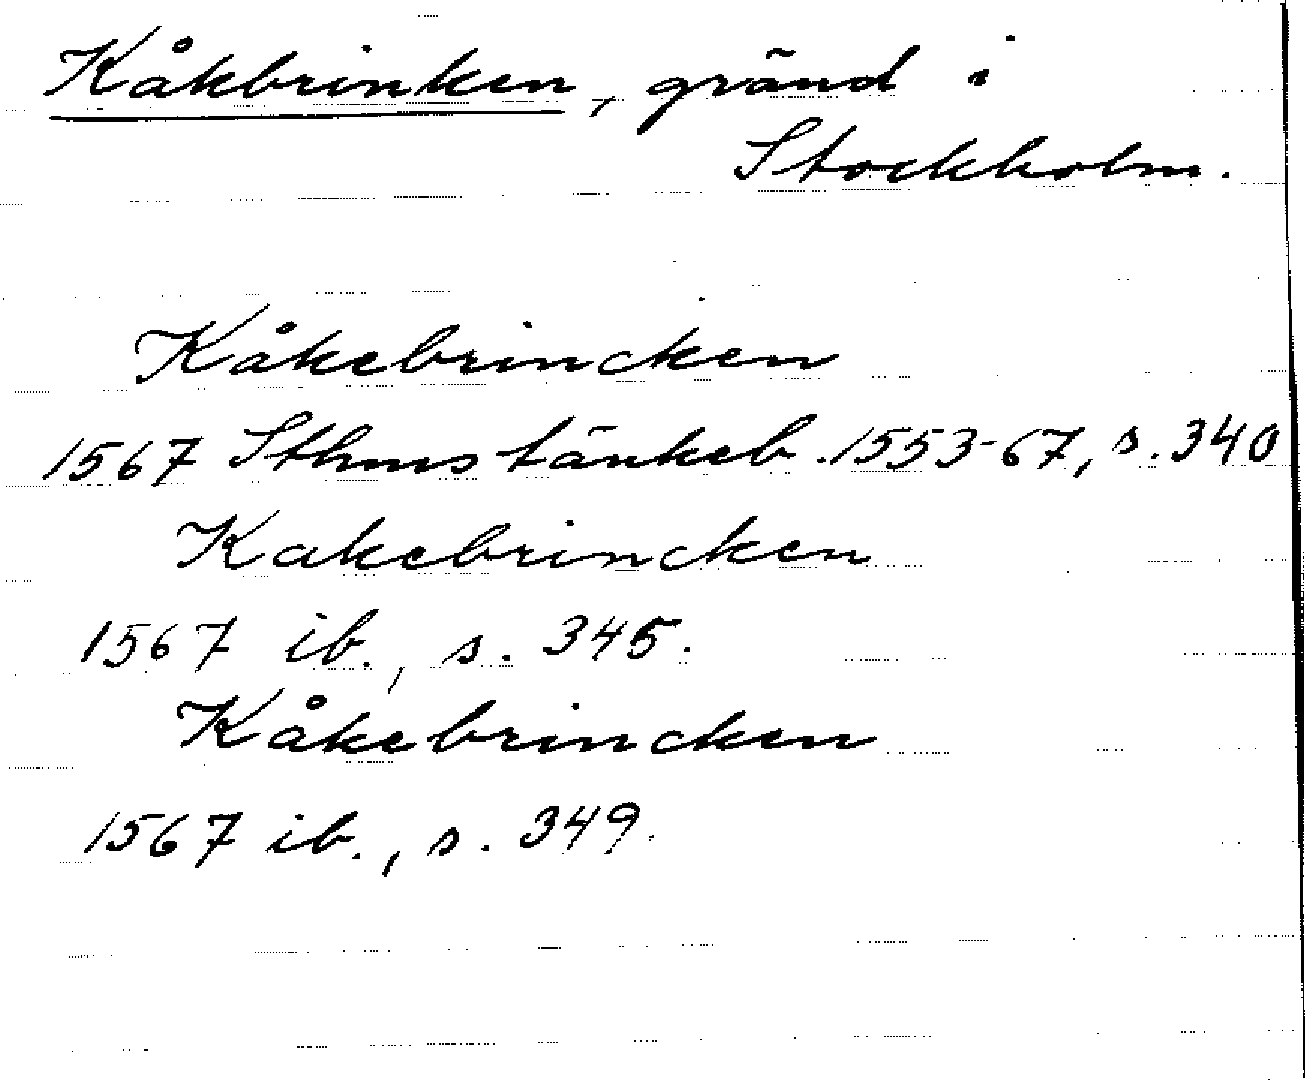 Kåkbrinken, gränd i
Stockholm.
Kåkebrincken
1567 Sthms tänkeb. 1553-67, s. 340
Kakebrincken
1567 ib., s. 345.
Kåkebrincken
1567 ib., s. 349.